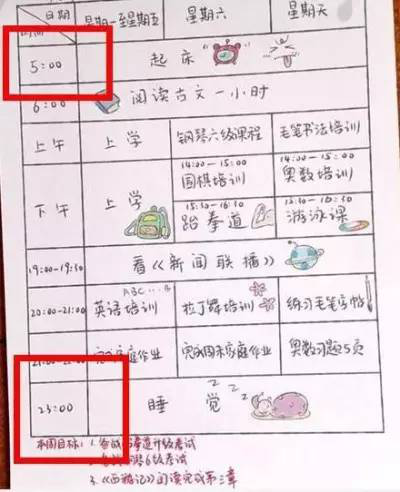 日期
时间
星期一至星期五 星期六 星期天
5:00 起床
6:00 阅读古文一小时
上午 上学 钢琴六级课程 毛笔书法培训
下午 上学
14:00-15:00 围棋培训
14:00-15:00 奥数培训
15:30-16:30 跆拳道
15:30-16:30 游泳课
19:00-19:30 看《新闻联播》
ABC...
20:00-21:00 英语培训 拉丁舞培训 练习毛笔字帖
21:00-22:00 完成家庭作业 完成周末家庭作业 奥数习题5页
23:00 睡觉
ZZZ
本周目标: 1. 备战跆拳道升级考试
2. 6级考试
3.《西游记》阅读完成第三章